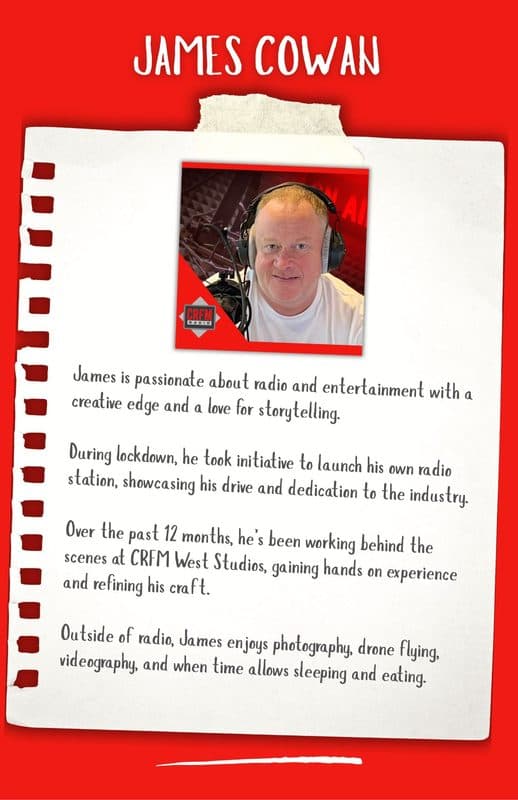 JAMES COWAN
ON AI
CRFM
RADIO
James is passionate about radio and entertainment with a
creative edge and a love for storytelling.
During lockdown, he took initiative to launch his own radio
station, showcasing his drive and dedication to the industry.
Over the past 12 months, he's been working behind the
scenes at CRFM West Studios, gaining hands on experience
and refining his craft.
Outside of radio, James enjoys photography, drone flying,
videography, and when time allows sleeping and eating.